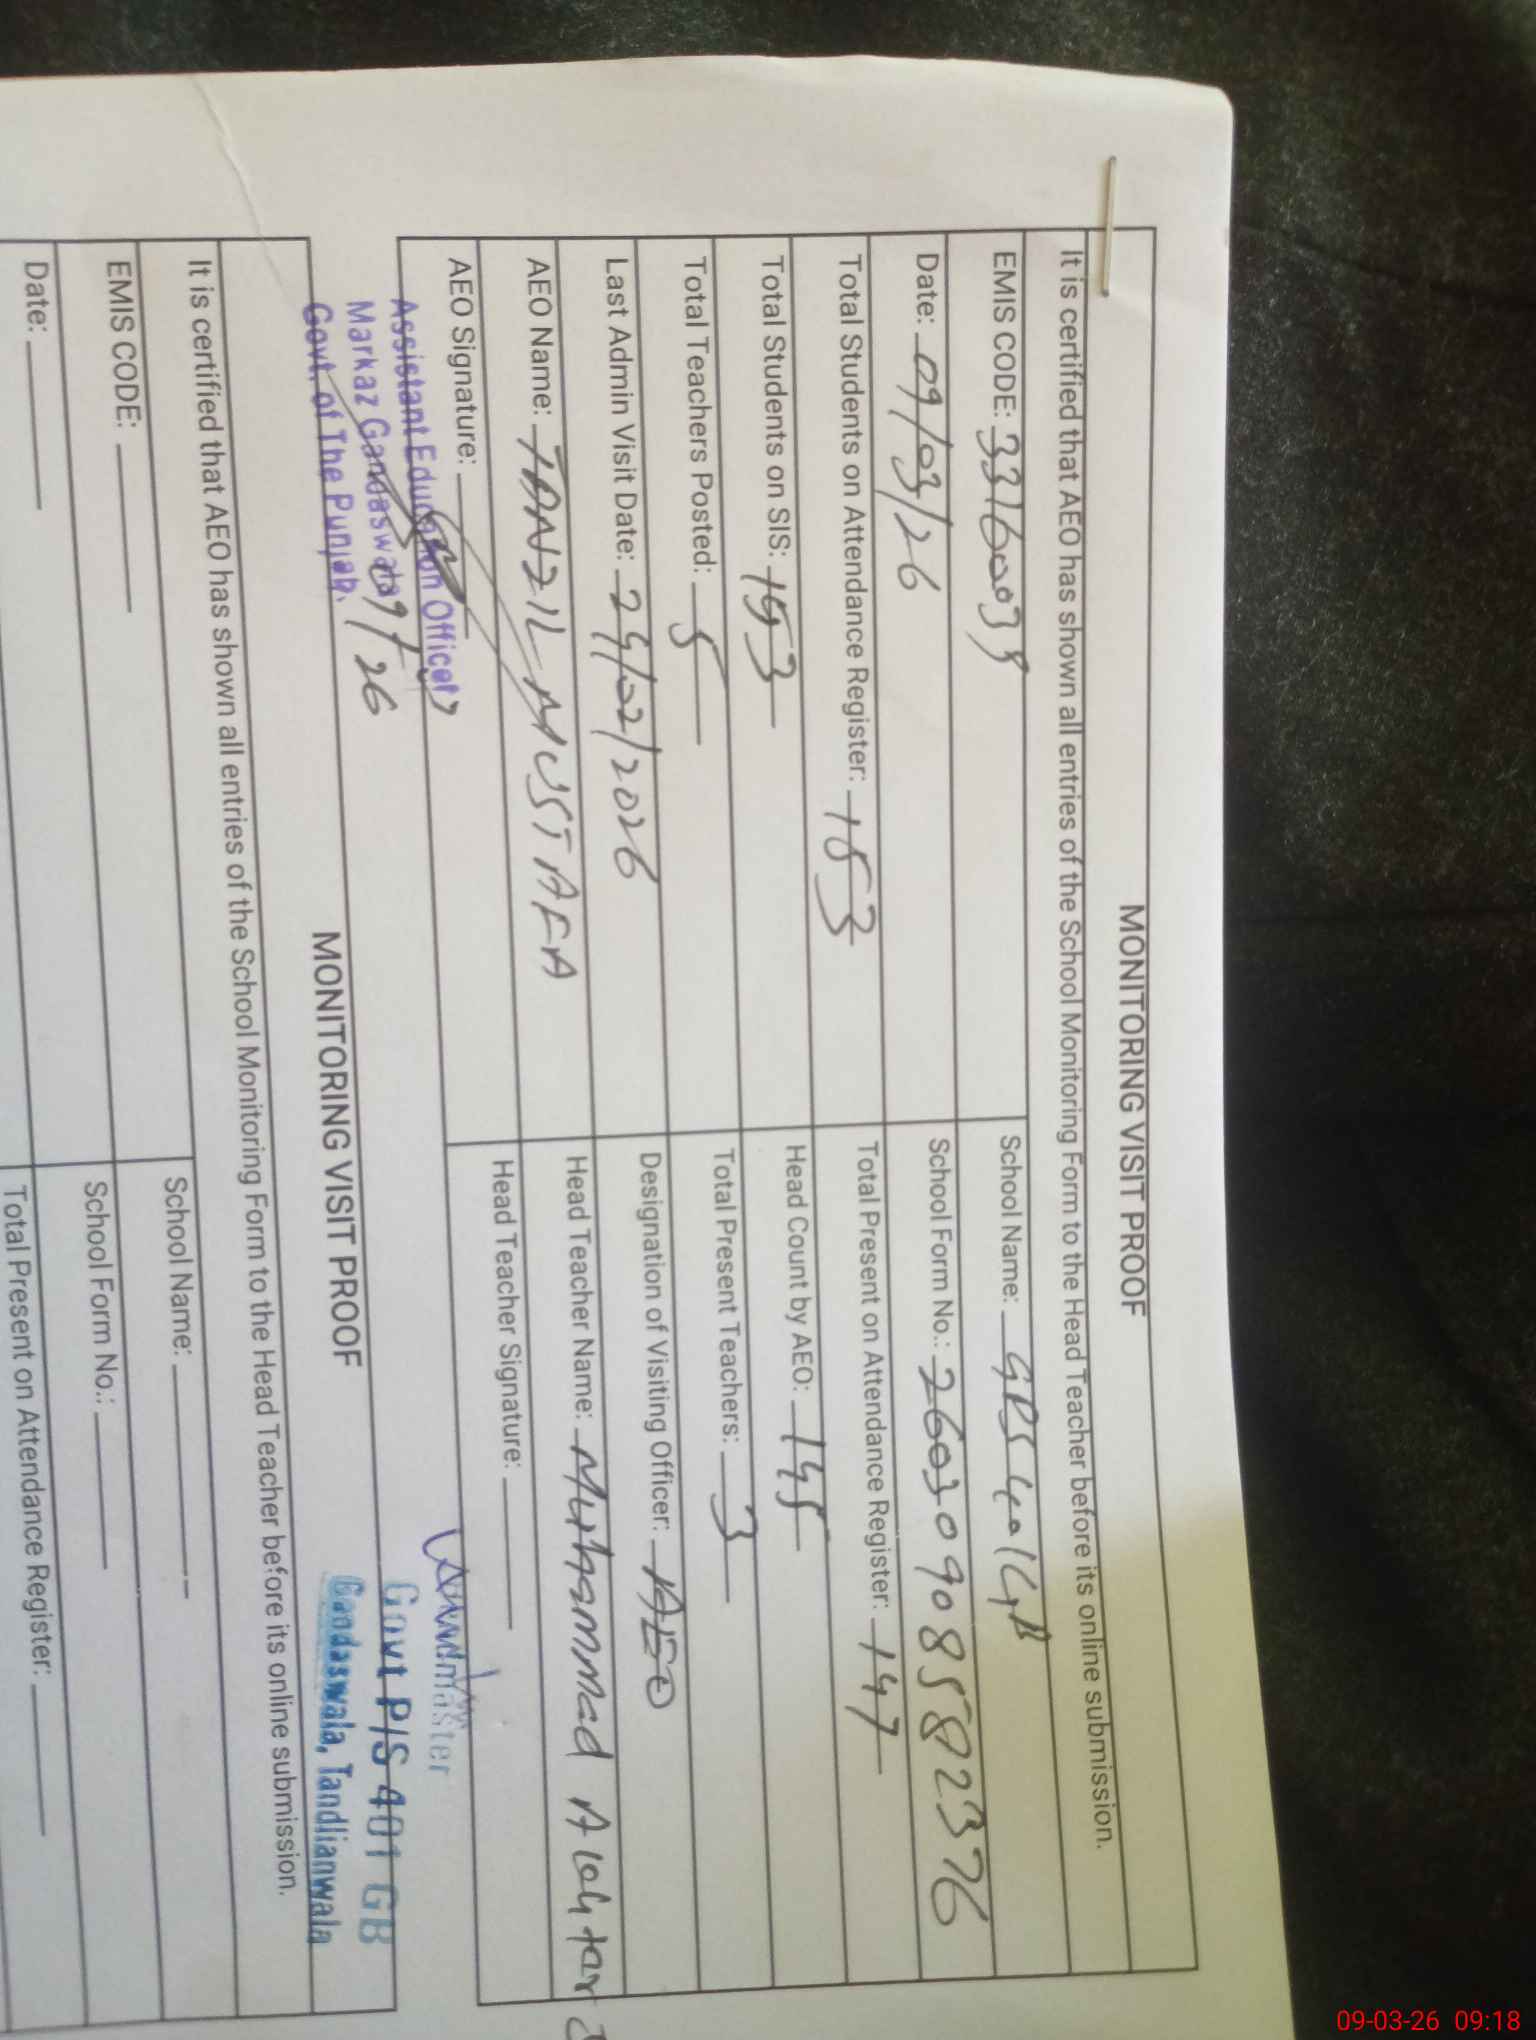 MONITORING VISIT PROOF
It is certified that AEO has shown all entries of the School Monitoring Form to the Head Teacher before its online submission.
EMIS CODE: 33160039 School Name: GPS 401 GB
Date: 09/03/26 School Form No.: 26030908582376
Total Students on Attendance Register: 153 Total Present on Attendance Register: 147
Total Students on SIS: 153 Head Count by AEO: 145
Total Teachers Posted: 5 Total Present Teachers: 3
Last Admin Visit Date: /02/2026 Designation of Visiting Officer: AEO
AEO Name: TANZIL MUSTAFA Head Teacher Name: Muhammad Akhtar
AEO Signature: Head Teacher Signature:
Assistant Education Officer
Markaz Gandaswala
Govt. of The Punjab.
Headmaster
Govt P/S 401 GB
Gandaswala, Tandlianwala
MONITORING VISIT PROOF
It is certified that AEO has shown all entries of the School Monitoring Form to the Head Teacher before its online submission.
EMIS CODE: School Name:
Date: School Form No.:
Total Present on Attendance Register:
09-03-26 09:18